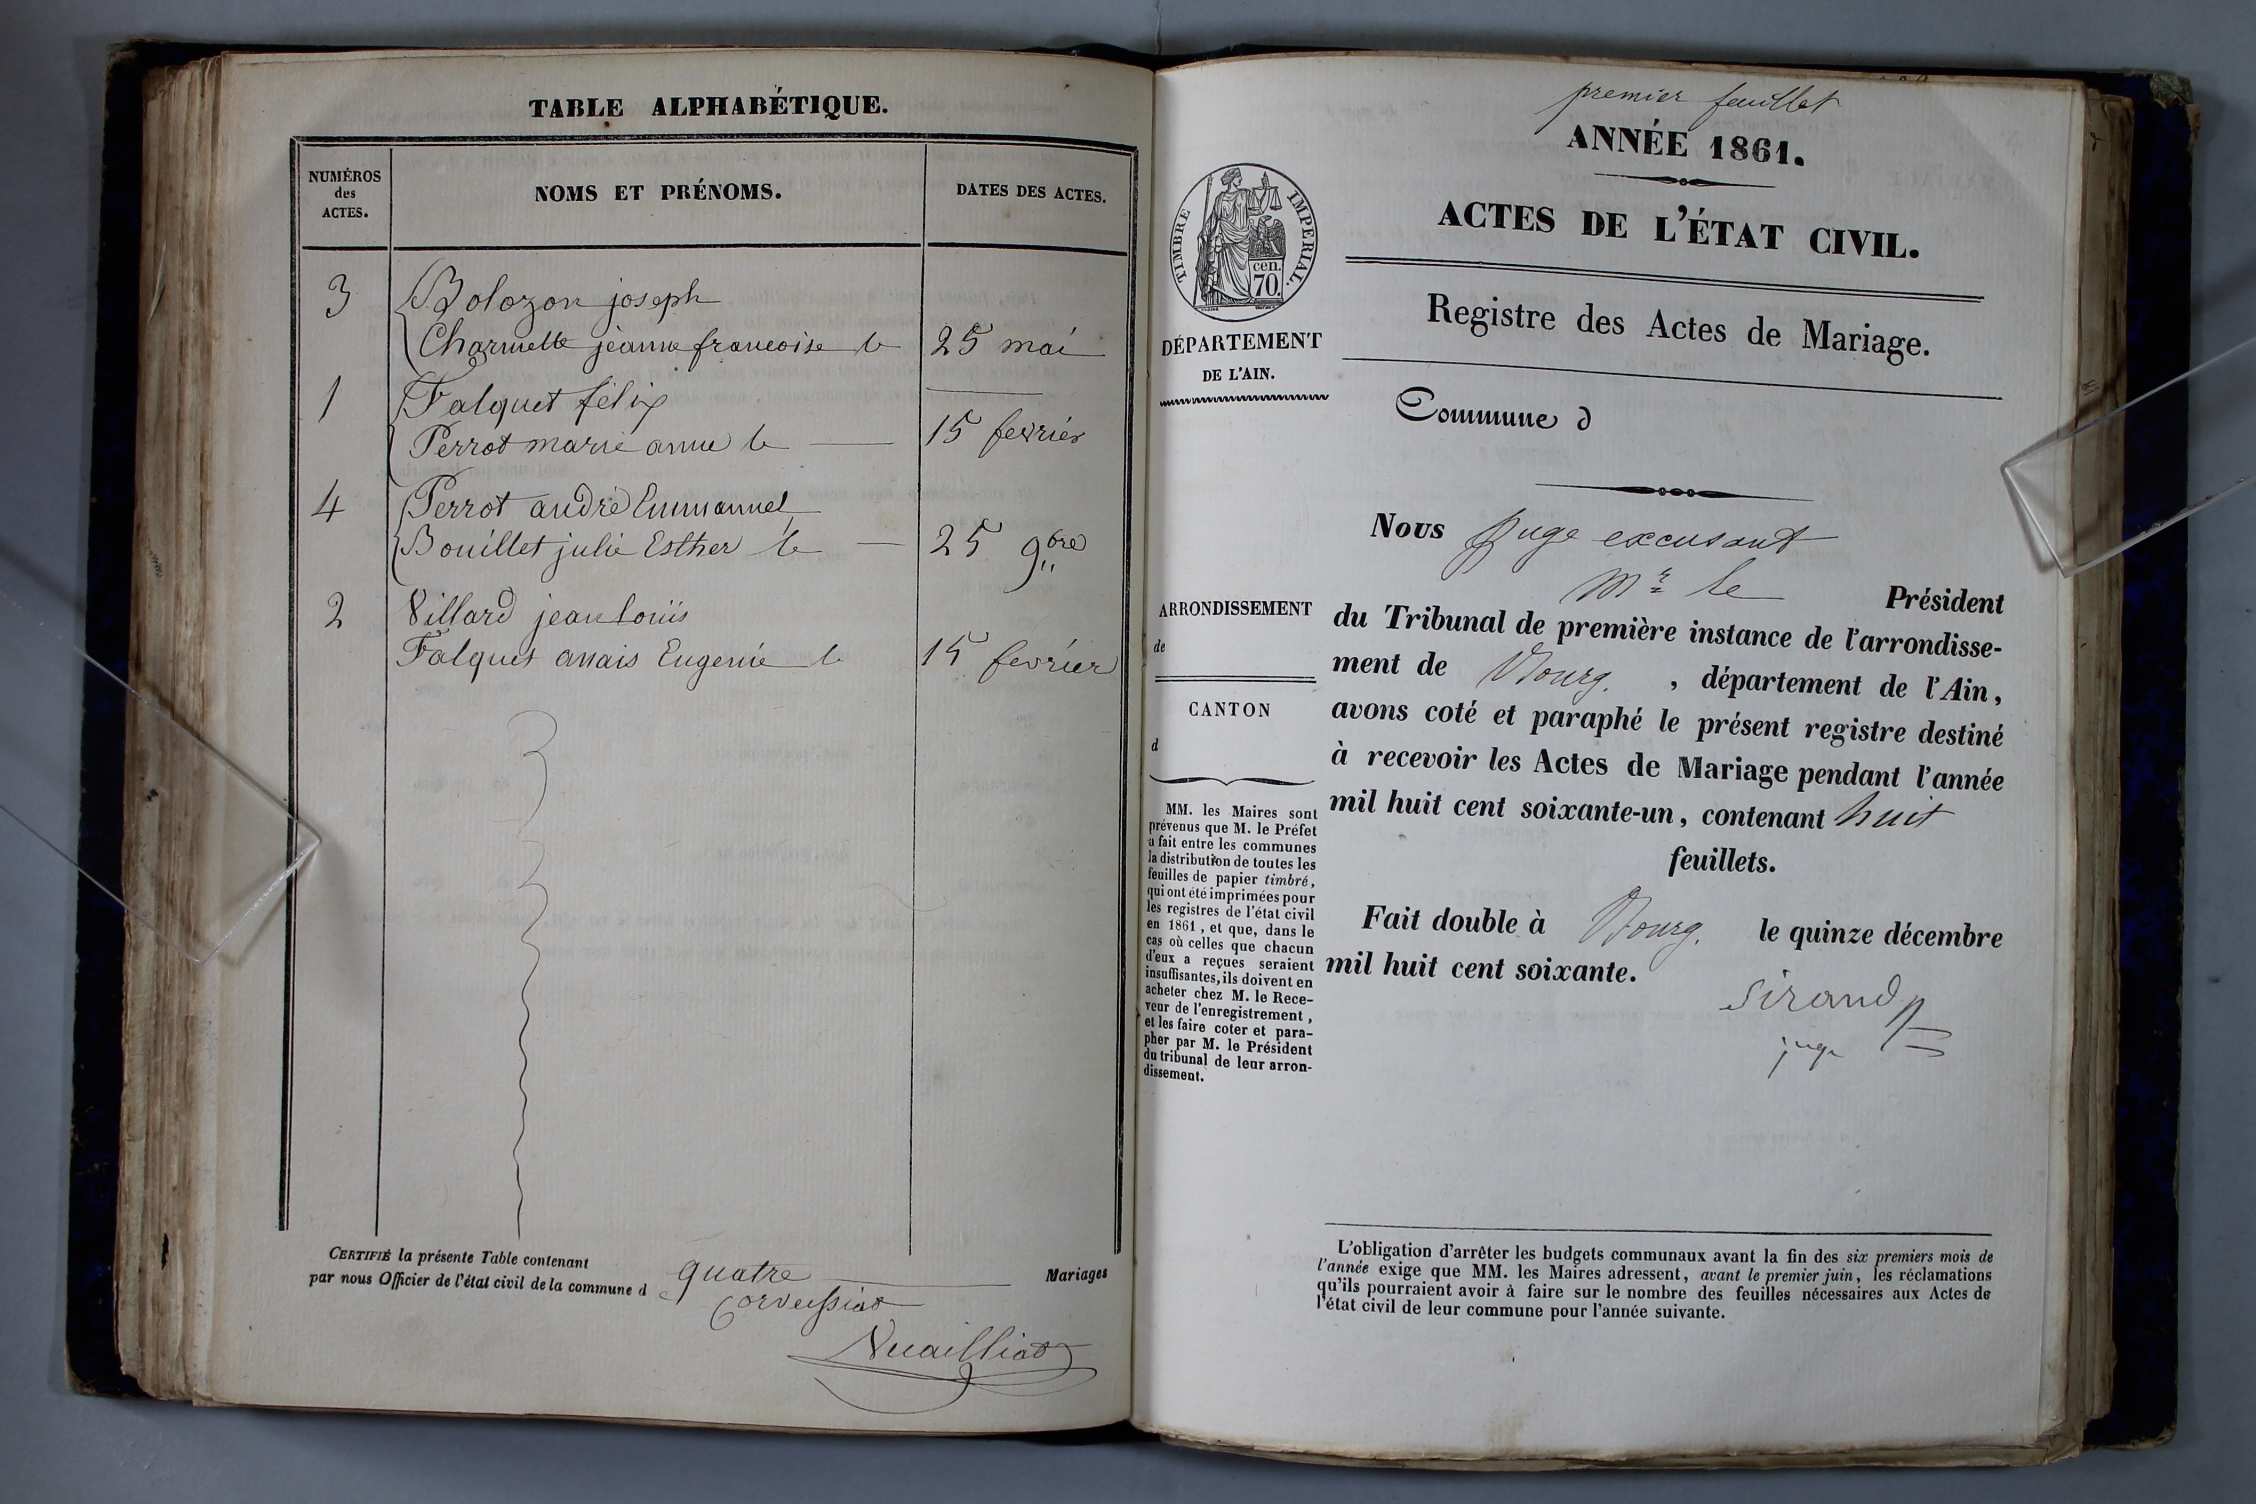 TABLE ALPHABÉTIQUE.
NUMÉROS
des
ACTES.
NOMS ET PRÉNOMS.
DATES DES ACTES.
3 Bolozon joseph
Charnelle jeanne francoise le 25 mai
1 Falquet félix
Perrot marie anne le 15 fevrier
4 Perrot andré Emmanuel
Bouillet julie Esther le 25 9bre
2 Villard jean louis
Falquet anais Eugenie le 15 fevrier
CERTIFIÉ la présente Table contenant quatre Mariages
par nous Officier de l'état civil de la commune d
Corveissiat
Vuailliat
premier feuillet
ANNÉE 1861.
ACTES DE L'ÉTAT CIVIL.
Registre des Actes de Mariage.
Commune d
TIMBRE IMPERIAL.
cen.
70.
DÉPARTEMENT
DE L'AIN.
ARRONDISSEMENT
de
CANTON
d
MM. les Maires sont
prévenus que M. le Préfet
a fait entre les communes
la distribution de toutes les
feuilles de papier timbré,
qui ont été imprimées pour
les registres de l'état civil
en 1861, et que, dans le
cas où celles que chacun
d'eux a reçues seraient
insuffisantes, ils doivent en
acheter chez M. le Rece-
veur de l'enregistrement,
et les faire coter et para-
pher par M. le Président
du tribunal de leur arron-
dissement.
Nous juge excusant
Mr le Président
du Tribunal de première instance de l'arrondisse-
ment de Bourg, département de l'Ain,
avons coté et paraphé le présent registre destiné
à recevoir les Actes de Mariage pendant l'année
mil huit cent soixante-un, contenant huit
feuillets.
Fait double à Bourg. le quinze décembre
mil huit cent soixante.
Sirand
juge
L'obligation d'arrêter les budgets communaux avant la fin des six premiers mois de
l'année exige que MM. les Maires adressent, avant le premier juin, les réclamations
qu'ils pourraient avoir à faire sur le nombre des feuilles nécessaires aux Actes de
l'état civil de leur commune pour l'année suivante.